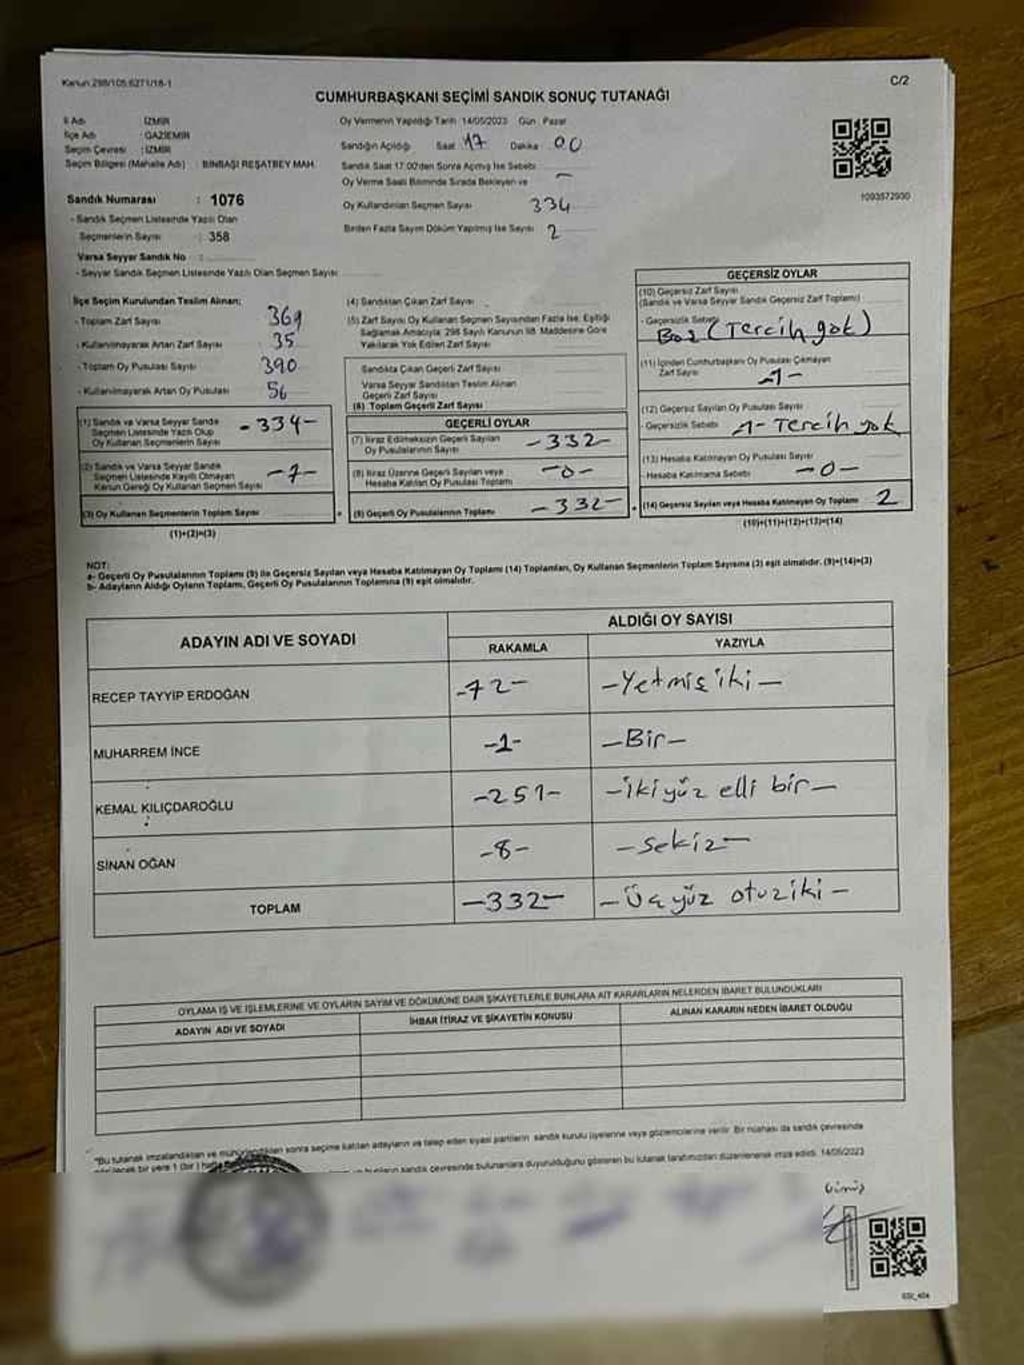 Kanun:298/105,6271/18-1
C/2
CUMHURBAŞKANI SEÇİMİ SANDIK SONUÇ TUTANAĞI
İl Adı : İZMİR
İlçe Adı : GAZİEMİR
Seçim Çevresi : İZMİR
Seçim Bölgesi (Mahalle Adı) : BİNBAŞI REŞATBEY MAH.
Oy Vermenin Yapıldığı Tarih 14/05/2023 Gün : Pazar
Sandığın Açıldığı Saat 17 Dakika : 00
Sandık Saat 17:00'den Sonra Açımış İse Sebebi
Oy Verme Saati Bitiminde Sırada Bekleyen ve –
Oy Kullandırılan Seçmen Sayısı 334
Birden Fazla Sayım Döküm Yapılmış İse Sayısı 2
1093572930
Sandık Numarası : 1076
- Sandık Seçmen Listesinde Yazılı Olan
Seçmenlerin Sayısı : 358
Varsa Seyyar Sandık No :
- Seyyar Sandık Seçmen Listesinde Yazılı Olan Seçmen Sayısı
İlçe Seçim Kurulundan Teslim Alınan;
- Toplam Zarf Sayısı 369
- Kullanılmayarak Artan Zarf Sayısı 35
- Toplam Oy Pusulası Sayısı 390
- Kullanılmayarak Artan Oy Pusulası 56
(1) Sandık ve Varsa Seyyar Sandık
Seçmen Listesinde Yazılı Olup
Oy Kullanan Seçmenlerin Sayısı -334-
(2) Sandık ve Varsa Seyyar Sandık
Seçmen Listesinde Kayıtlı Olmayan
Kanun Gereği Oy Kullanan Seçmen Sayısı
(3) Oy Kullanan Seçmenlerin Toplam Sayısı
(1)+(2)=(3)
(4) Sandıktan Çıkan Zarf Sayısı
(5) Zarf Sayısı Oy Kullanan Seçmen Sayısından Fazla İse; Eşitliği
Sağlamak Amacıyla; 298 Sayılı Kanunun 98. Maddesine Göre
Yakılarak Yok Edilen Zarf Sayısı
Sandıkta Çıkan Geçerli Zarf Sayısı
Varsa Seyyar Sandıktan Teslim Alınan
Geçerli Zarf Sayısı
(6) Toplam Geçerli Zarf Sayısı
GEÇERLİ OYLAR
(7) İtiraz Edilmeksizin Geçerli Sayılan
Oy Pusulalarının Sayısı -332-
(8) İtiraz Üzerine Geçerli Sayılan veya
Hesaba Katılan Oy Pusulası Toplamı -0-
(9) Geçerli Oy Pusulalarının Toplamı -332-
GEÇERSİZ OYLAR
(10) Geçersiz Zarf Sayısı
(Sandık ve Varsa Seyyar Sandık Geçersiz Zarf Toplamı)
- Geçersizlik Sebebi
Boş (Tercih yok)
(11) İçinden Cumhurbaşkanı Oy Pusulası Çıkmayan
Zarf Sayısı -1-
(12) Geçersiz Sayılan Oy Pusulası Sayısı
- Geçersizlik Sebebi 1- Tercih yok
(13) Hesaba Katılmayan Oy Pusulası Sayısı
- Hesaba Katılmama Sebebi -0-
(14) Geçersiz Sayılan veya Hesaba Katılmayan Oy Toplamı 2
(10)+(11)+(12)+(13)=(14)
NOT:
a- Geçerli Oy Pusulalarının Toplamı (9) ile Geçersiz Sayılan veya Hesaba Katılmayan Oy Toplamı (14) Toplamları, Oy Kullanan Seçmenlerin Toplam Sayısına (3) eşit olmalıdır. (9)+(14)=(3)
b- Adayların Aldığı Oyların Toplamı, Geçerli Oy Pusulalarının Toplamına (9) eşit olmalıdır.
ADAYIN ADI VE SOYADI
ALDIĞI OY SAYISI
RAKAMLA YAZIYLA
RECEP TAYYİP ERDOĞAN -72- -Yetmiş iki-
MUHARREM İNCE -1- -Bir-
KEMAL KILIÇDAROĞLU -251- -ikiyüz elli bir-
SİNAN OĞAN -8- -sekiz-
TOPLAM -332- -Üçyüz otuziki-
OYLAMA İŞ VE İŞLEMLERİNE VE OYLARIN SAYIM VE DÖKÜMÜNE DAİR ŞİKAYETLERLE BUNLARA AİT KARARLARIN NELERDEN İBARET BULUNDUKLARI
ADAYIN ADI VE SOYADI İHBAR İTİRAZ VE ŞİKAYETİN KONUSU ALINAN KARARIN NEDEN İBARET OLDUĞU
"Bu tutanak imzalandıktan ve sonra seçime katılan adayların ve talep eden siyasi partilerin sandık kurulu üyelerine veya gözlemcilerine verilir. Bir nüshası da sandık çevresinde
bir yere 1 (bir) sandık çevresinde bulunanlara duyurulduğunu gösteren bu tutanak tarafımızdan düzenlenerek imza edildi. 14/05/2023